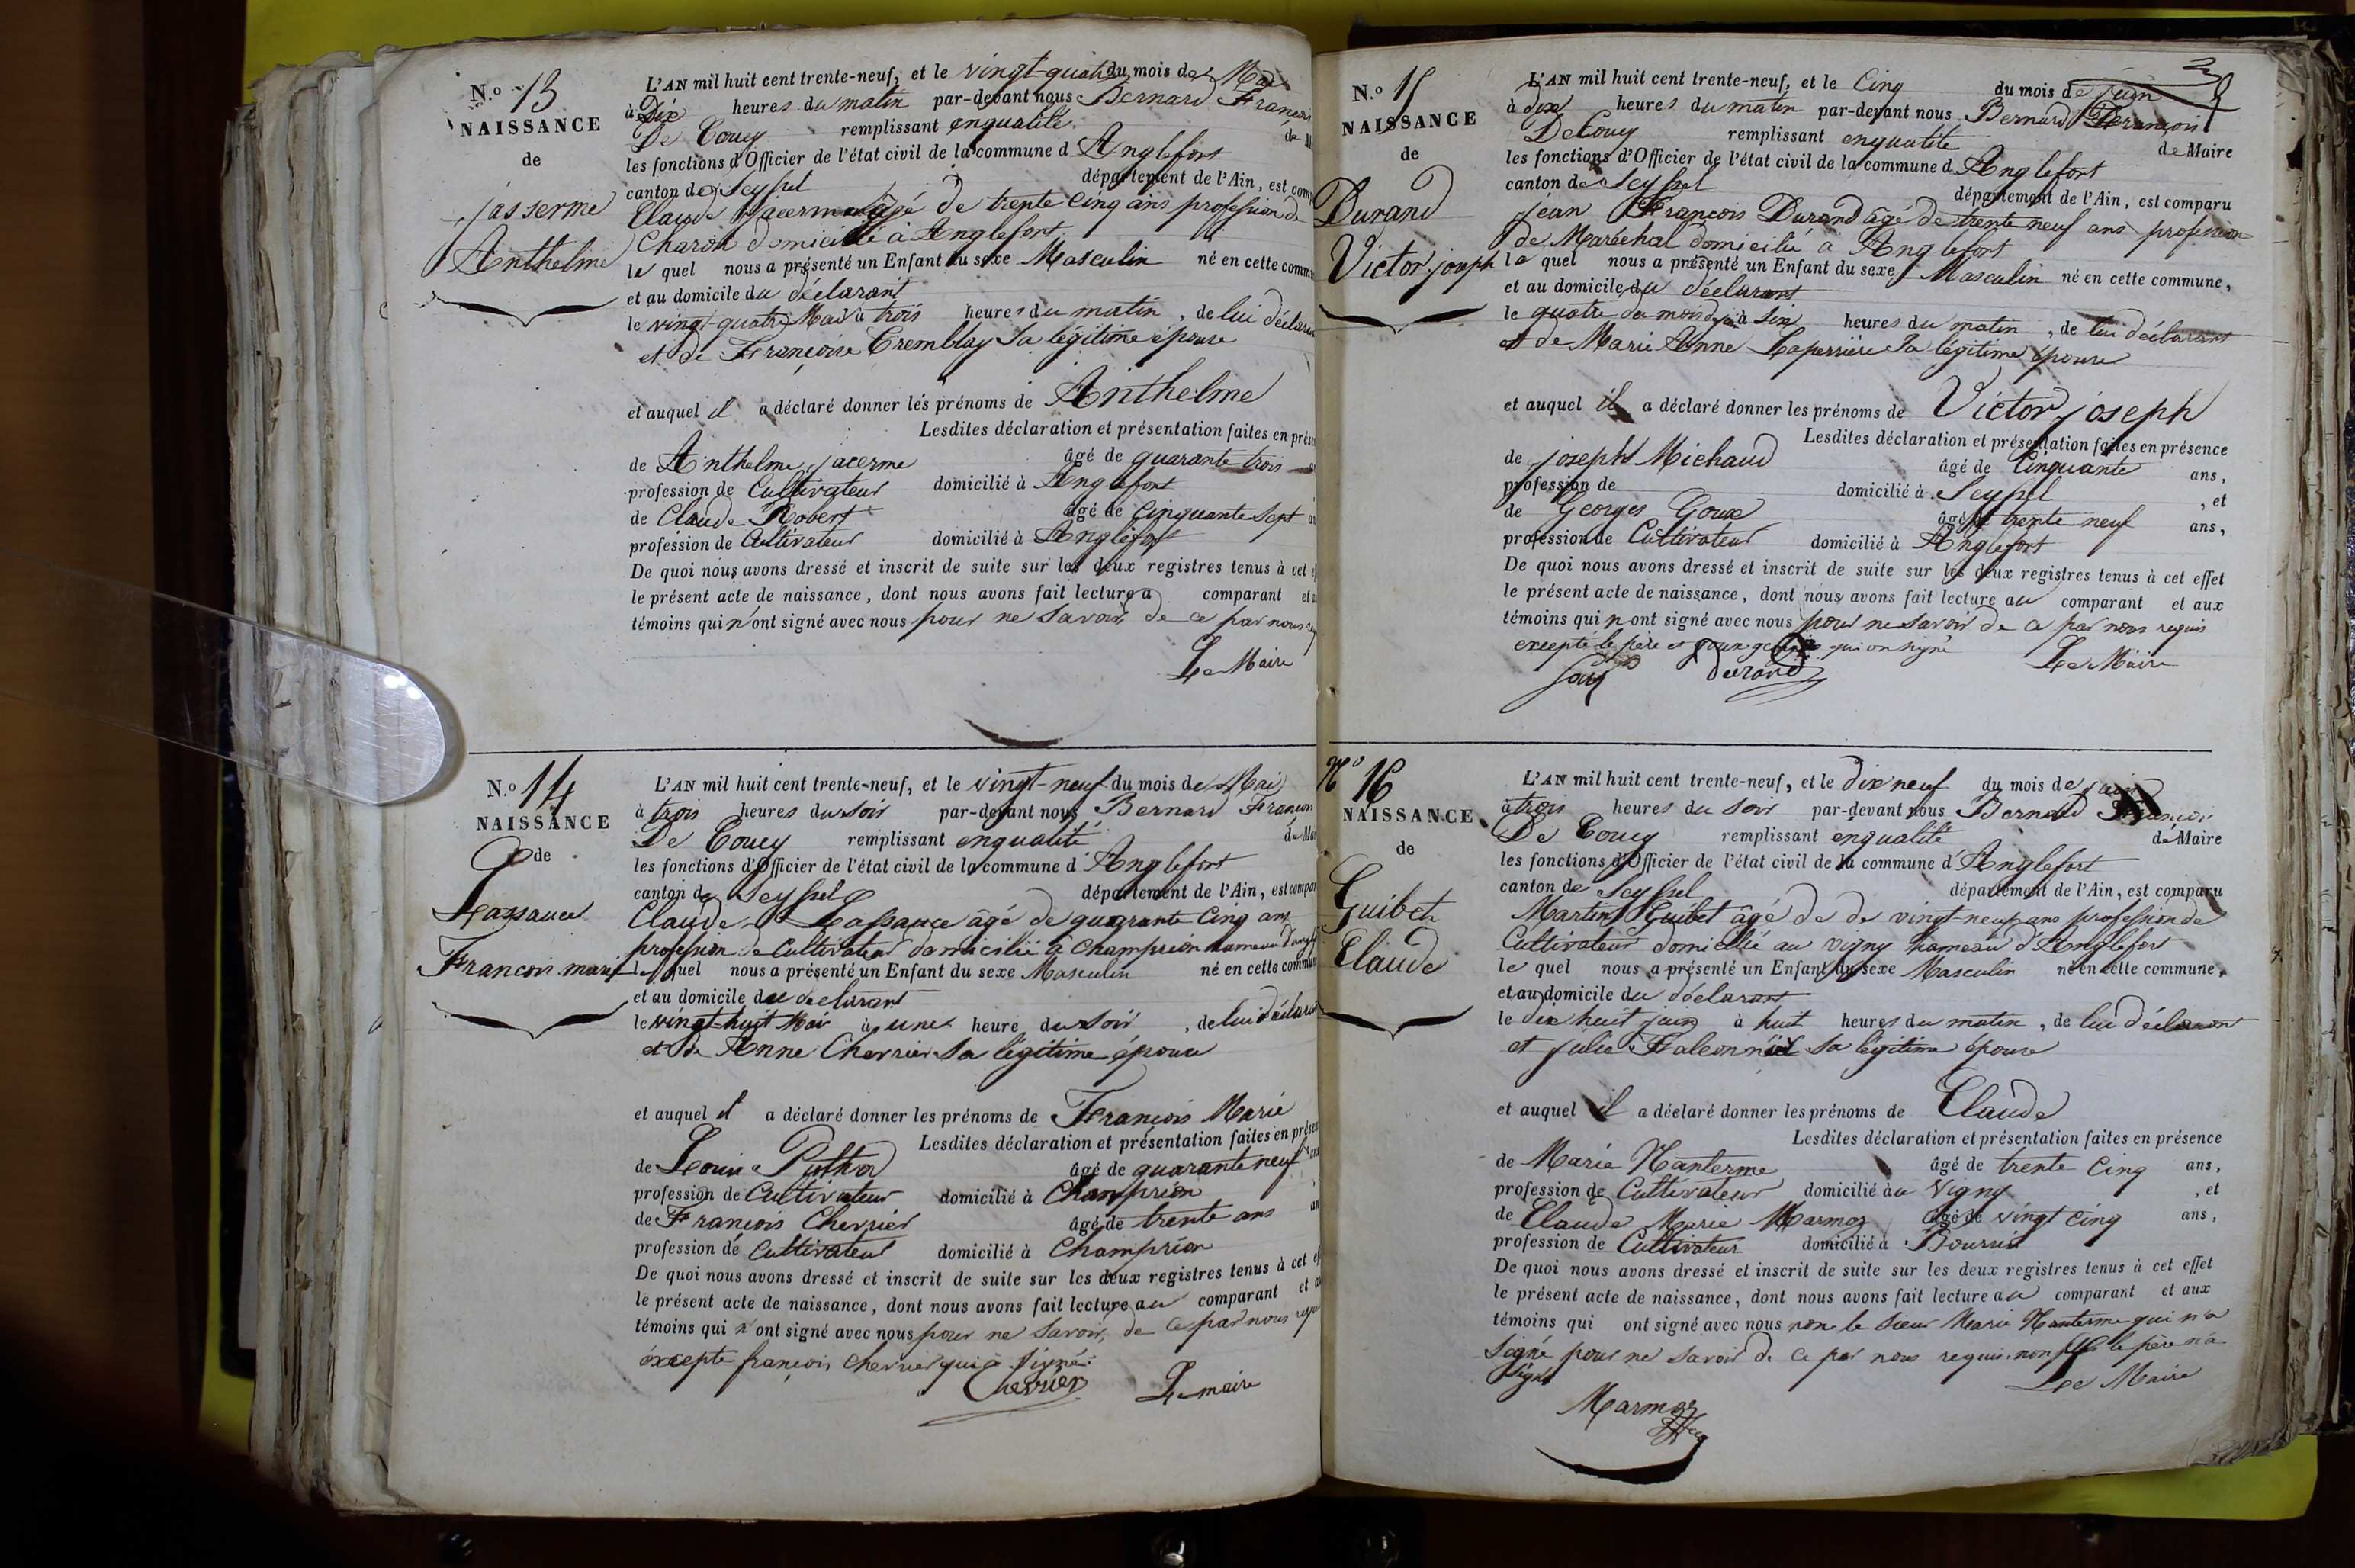 N.o 13
NAISSANCE
de
jasserme
Anthelme
L'AN mil huit cent trente-neuf, et le vingt-quatre du mois de Mai
à Dix heures du matin par-devant nous Bernard François
De Coucy remplissant enqualité de
les fonctions d'Officier de l'état civil de la commune d Anglefort
canton de Seyssel département de l'Ain, est
Claude jacerme âgé de trente Cinq ans profession de
Charon domicilié à Anglefort
le quel nous a présenté un Enfant du sexe Masculin né en cette
et au domicile du déclarant
le vingt-quatre Mai à trois heures du matin, de lui
et de Françoise Tremblay Sa légitime épouse
et auquel il a déclaré donner les prénoms de Anthelme
Lesdites déclaration et présentation faites en
de Anthelme jacerme âgé de quarante trois
profession de Cultivateur domicilié à Anglefort
de Claude Robert âgé de Cinquante Sept
profession de Cultivateur domicilié à Anglefort
De quoi nous avons dressé et inscrit de suite sur les deux registres tenus à cet
le présent acte de naissance, dont nous avons fait lecture a comparant et
témoins qui n'ont signé avec nous pour ne Savoir, de ce par nous
Le Maire
N.o 14
NAISSANCE
de
Lassauce
François marie
L'AN mil huit cent trente-neuf, et le vingt-neuf du mois de Mai
à trois heures du soir par-devant nous Bernard François
De Coucy remplissant enqualité de
les fonctions d'Officier de l'état civil de la commune d Anglefort
canton de Seyssel département de l'Ain, est
Claude Lassauce âgé de quarante Cinq ans
profession de Cultivateur domicilié à Champrion hameau
le quel nous a présenté un Enfant du sexe Masculin né en cette
et au domicile du declarant
le vingt-huit Mai à une heure du Soir, de lui
et de Anne Cherrier Sa légitime épouse
et auquel il a déclaré donner les prénoms de François Marie
Lesdites déclaration et présentation faites en
de Louis âgé de quarante neuf
profession de Cultivateur domicilié à Champrion
de François Cherrier âgé de trente ans
profession de Cultivateur domicilié à Champrion
De quoi nous avons dressé et inscrit de suite sur les deux registres tenus à cet
le présent acte de naissance, dont nous avons fait lecture au comparant et
témoins qui n'ont signé avec nous pour ne Savoir, de ce par nous
excepte françois Cherrier qui a Signé
Cherrier Le maire
N.o 15
NAISSANCE
de
Durand
Victor joseph
L'AN mil huit cent trente-neuf, et le Cinq du mois de juin
à dix heures du matin par-devant nous Bernard François
De Coucy remplissant enqualité de Maire
les fonctions d'Officier de l'état civil de la commune d Anglefort
canton de Seyssel département de l'Ain, est comparu
jean François Durand âgé de trente neuf ans profession
de Maréchal domicilié à Anglefort
le quel nous a présenté un Enfant du sexe Masculin né en cette commune,
et au domicile du déclarant
le quatre du mois de juin à Six heures du matin, de lui déclarant
et de Marie Anne Laperrière Sa légitime épouse
et auquel il a déclaré donner les prénoms de Victor joseph
Lesdites déclaration et présentation faites en présence
de joseph Michaud âgé de Cinquante ans,
profession de domicilié à Seyssel, et
de Georges Goux âgé de trente neuf ans,
profession de Cultivateur domicilié à Anglefort
De quoi nous avons dressé et inscrit de suite sur les deux registres tenus à cet effet
le présent acte de naissance, dont nous avons fait lecture au comparant et aux
témoins qui n ont signé avec nous pour ne savoir de ce par nous requis
excepté le père et goux qui on signé
Goux Durand Le Maire
No 16
NAISSANCE
de
Guibet
Claude
L'AN mil huit cent trente-neuf, et le dix neuf du mois de juin
à trois heures du soir par-devant nous Bernard François
De Coucy remplissant enqualité de Maire
les fonctions d'Officier de l'état civil de la commune d'Anglefort
canton de Seyssel département de l'Ain, est comparu
Martin Guibet âgé de de vingt-neuf ans profession de
Cultivateur domicilié au vigny hameau d'Anglefort
le quel nous a présenté un Enfant du sexe Masculin né en cette commune,
et au domicile du déclarant
le dix huit juin à huit heures du matin, de lui déclarant
et julie Sa légitime épouse
et auquel il a déclaré donner les prénoms de Claude
Lesdites déclaration et présentation faites en présence
de Marie Nanterme âgé de trente Cinq ans,
profession de Cultivateur domicilié au Vigny, et
de Claude Marie Marmoz âgé de vingt Cinq ans,
profession de Cultivateur domicilié à
De quoi nous avons dressé et inscrit de suite sur les deux registres tenus à cet effet
le présent acte de naissance, dont nous avons fait lecture au comparant et aux
témoins qui ont signé avec nous non le Sieur Marie Nanterme qui n'a
Signé pour ne Savoir de ce par nous requis non plus le père n'a
Signé Le Maire
Marmoz